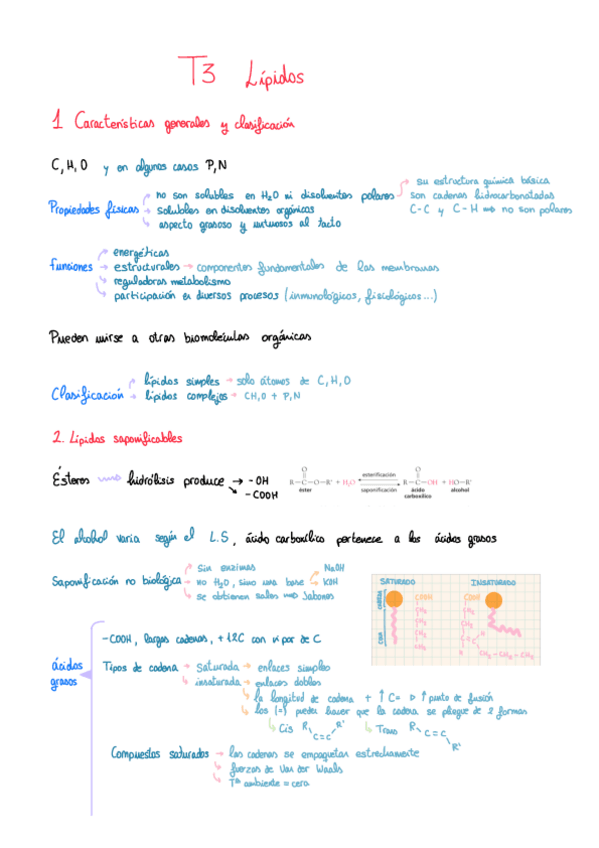 T3 Lípidos
1 Características generales y clasificación
C, H, O y en algunos casos P, N
Propiedades físicas
no son solubles en H₂O ni disolventes polares
su estructura química básica
son cadenas hidrocarbonatadas
C-C y C-H ⇒ no son polares
solubles en disolventes orgánicos
aspecto grasoso y untuosos al tacto
Funciones
energéticas
estructurales → componentes fundamentales de las membranas
reguladoras metabolismo
participación en diversos procesos (inmunológicos, fisiológicos...)
Pueden unirse a otras biomoléculas orgánicas
Clasificación
lípidos simples → solo átomos de C, H, O
lípidos complejos → CH,O + P,N
2. Lípidos saponificables
Ésteres ⟿ hidrólisis produce → -OH
→ -COOH
O
R-C-O-R' + H₂O
éster
esterificación
saponificación
O
R-C-OH + HO-R'
ácido carboxílico
alcohol
El alcohol varia según el L.S, ácido carboxílico pertenece a los ácidos grasos
Saponificación no biológica
Sin enzimas
no H₂O, sino una base
NaOH
KOH
se obtienen sales ⇒ Jabones
SATURADO
INSATURADO
CABEZA
COLA
COOH
CH₂
CH₂
CH₂
CH₂
COOH
CH₂
CH₂
C=C
H
H
CH₂-CH₂-CH₂
ácidos grasos
-COOH, largas cadenas, +12C con nº par de C
Tipos de cadena
Saturada → enlaces simples
insaturada → enlaces dobles
la longitud de cadena + ↑ C= ▷ ↑ punto de fusión
los (=) puede hacer que la cadena se pliegue de 2 formas
Cis R C=C R'
Trans R C=C R'
Compuestos saturados → las cadenas se empaquetan estrechamente
fuerzas de Van der Waals
Tª ambiente = cera